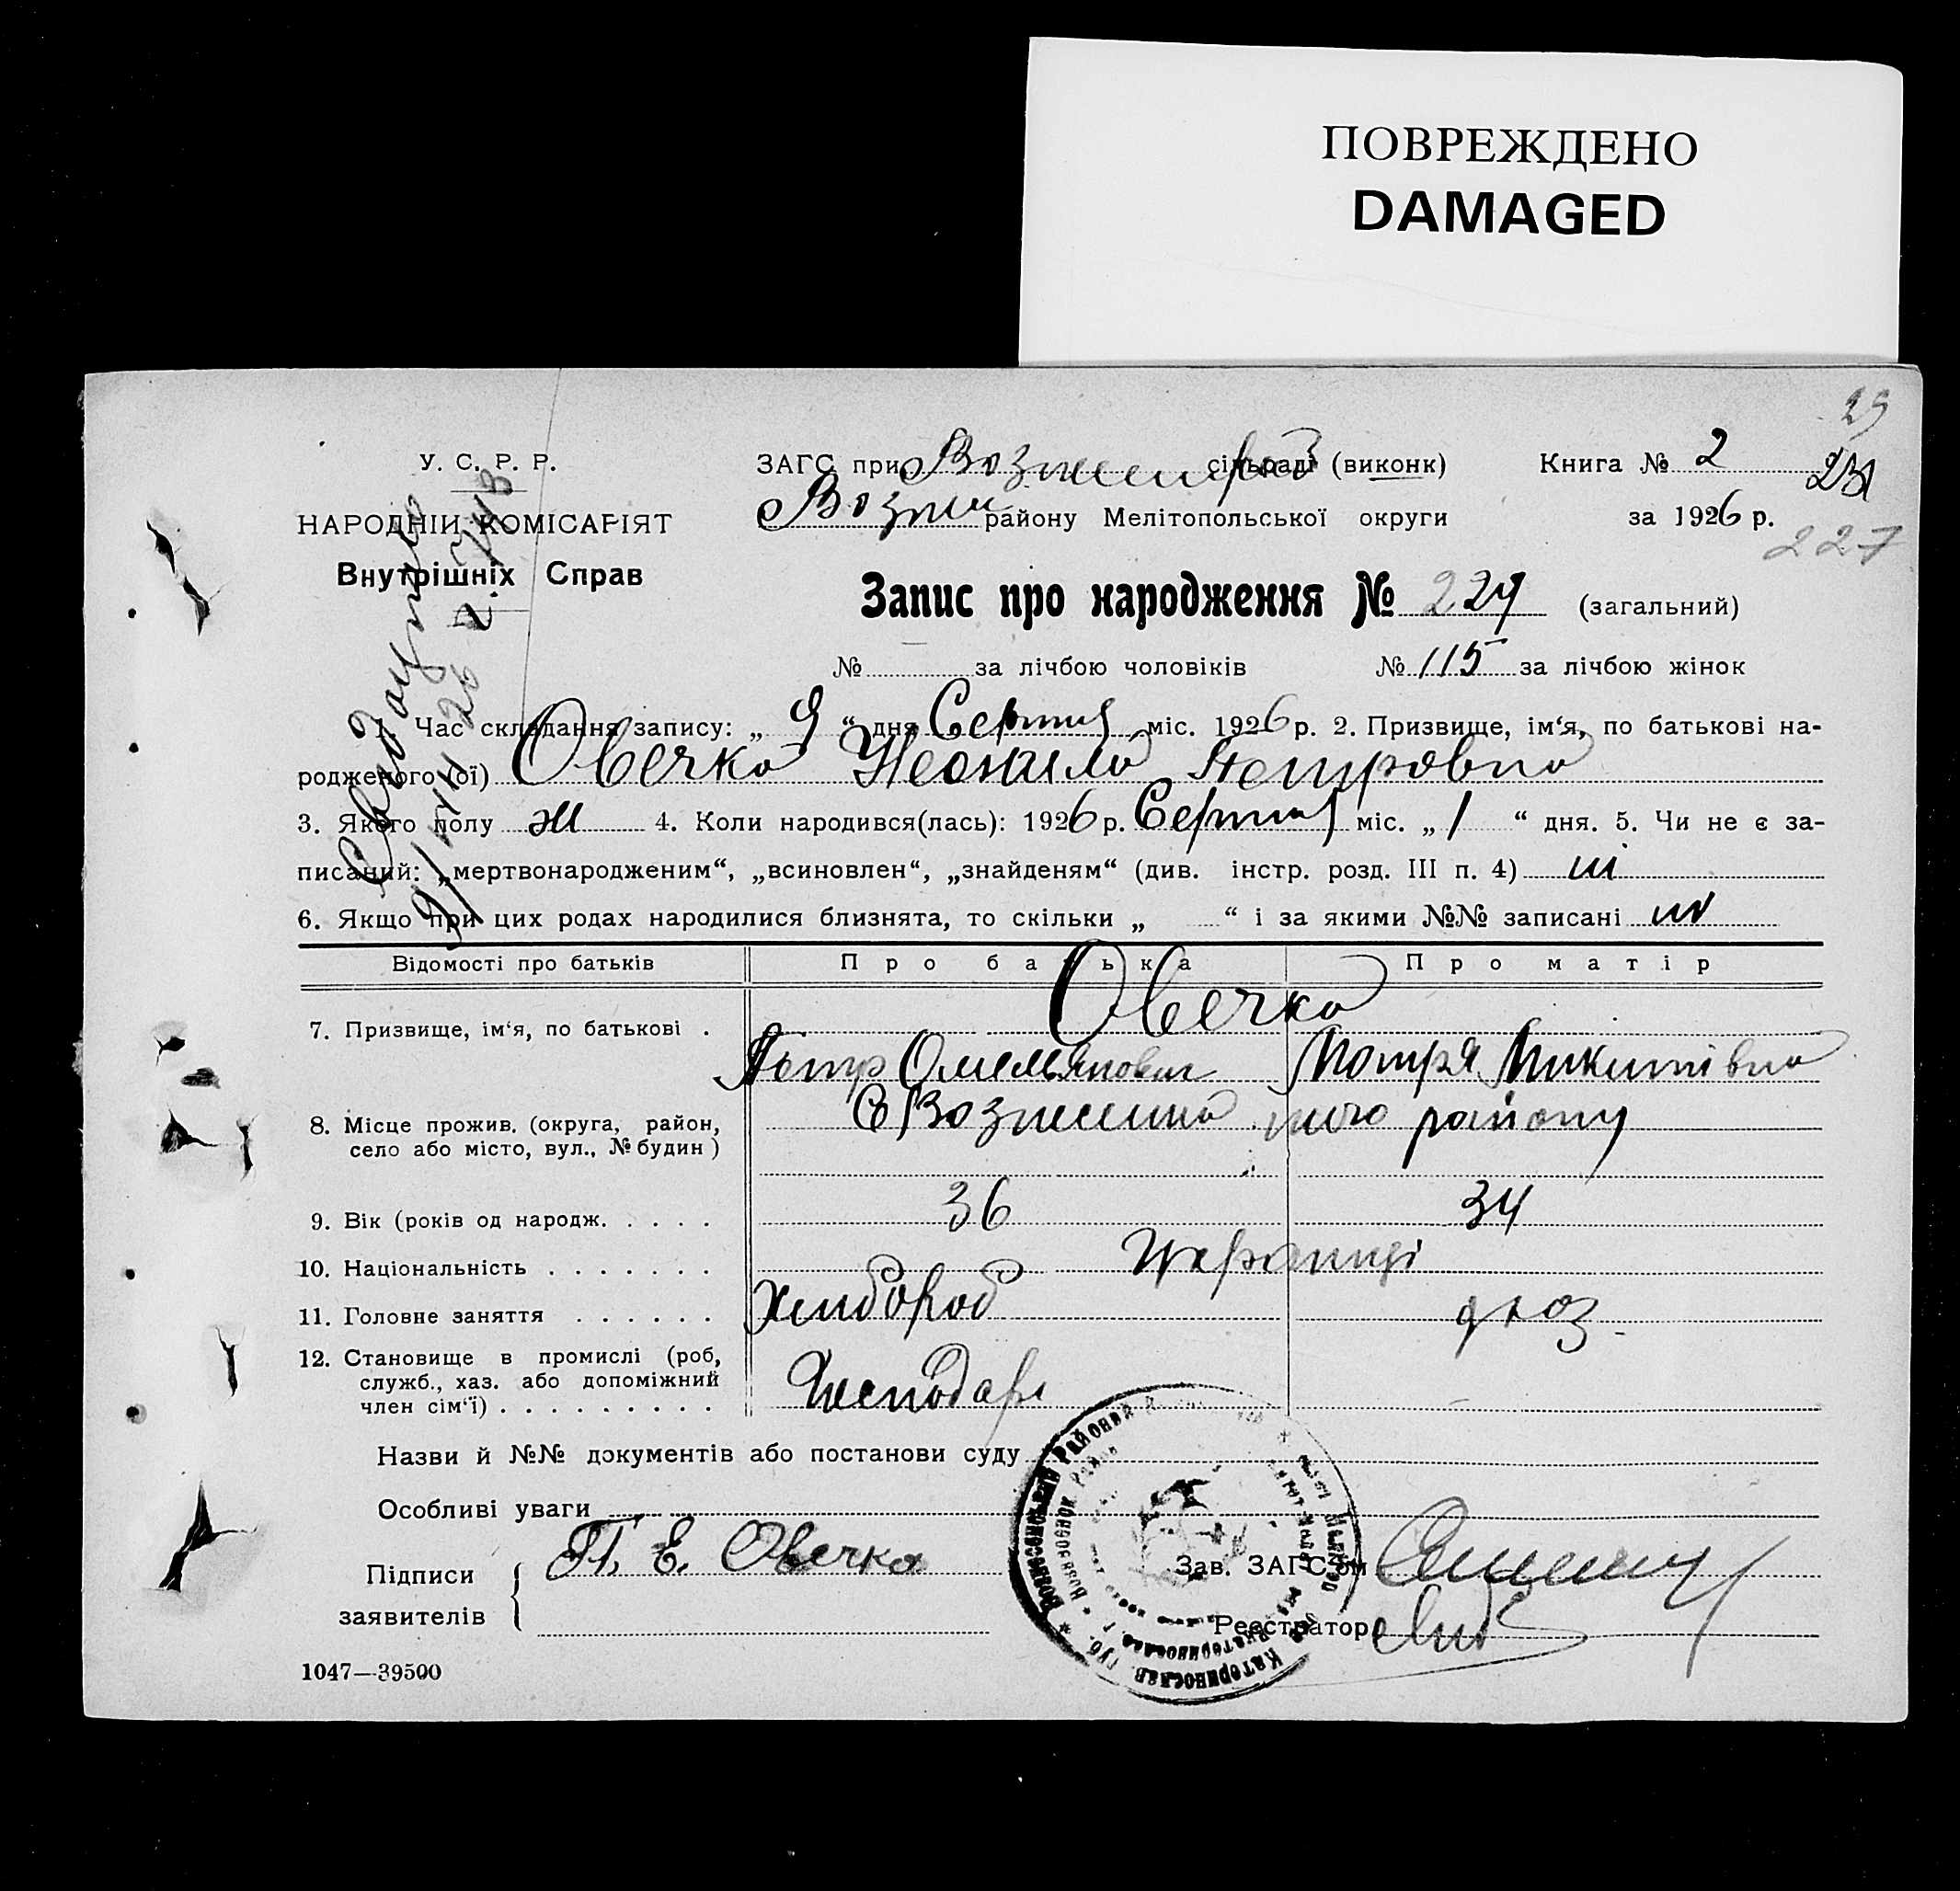 ПОВРЕЖДЕНО
DAMAGED
29
У. С. Р. Р.
ЗАГС при сільраді (виконк) Книга № 2
23
НАРОДНІЙ КОМІСАРІЯТ
Возне району Мелітопольської округи за 1926 р.
227
Внутрішніх Справ
Запис про народження № 227 (загальний)
№ за лічбою чоловіків № 115 за лічбою жінок
1. Час складання запису: „ 9 “ дня Серпня міс. 1926 р. 2. Призвище, ім‘я, по батькові на-
родженого (ої) Овечка Неоніла Петровна
3. Якого полу ж 4. Коли народився(лась): 1926 р. Серпня міс. „ 1 “ дня. 5. Чи не є за-
писаний: „мертвонародженим“, „всиновлен“, „знайденям“ (див. інстр. розд. III п. 4) ні
6. Якщо при цих родах народилися близнята, то скільки „ “ і за якими №№ записані ні
Відомості про батьків Про батька Про матір
Овечка
7. Призвище, ім‘я, по батькові .
Петр Омельянович Мотря Микитівна
8. Місце прожив. (округа, район, село або місто, вул., № будин) С Вознесенка того району
9. Вік (років од народж. . . . . 36 34
10. Національність . . . . . . . Українці
11. Головне заняття . . . . . . Хлібороб д хоз
12. Становище в промислі (роб,
служб., хаз. або допоміжний Господарь
член сім‘ї) . . . . . . . . .
Назви й №№ документів або постанови суду
Особливі уваги
Підписи П. Е. Овечка Зав. ЗАГС‘ом
заявителів Реєстратор
1047—39500